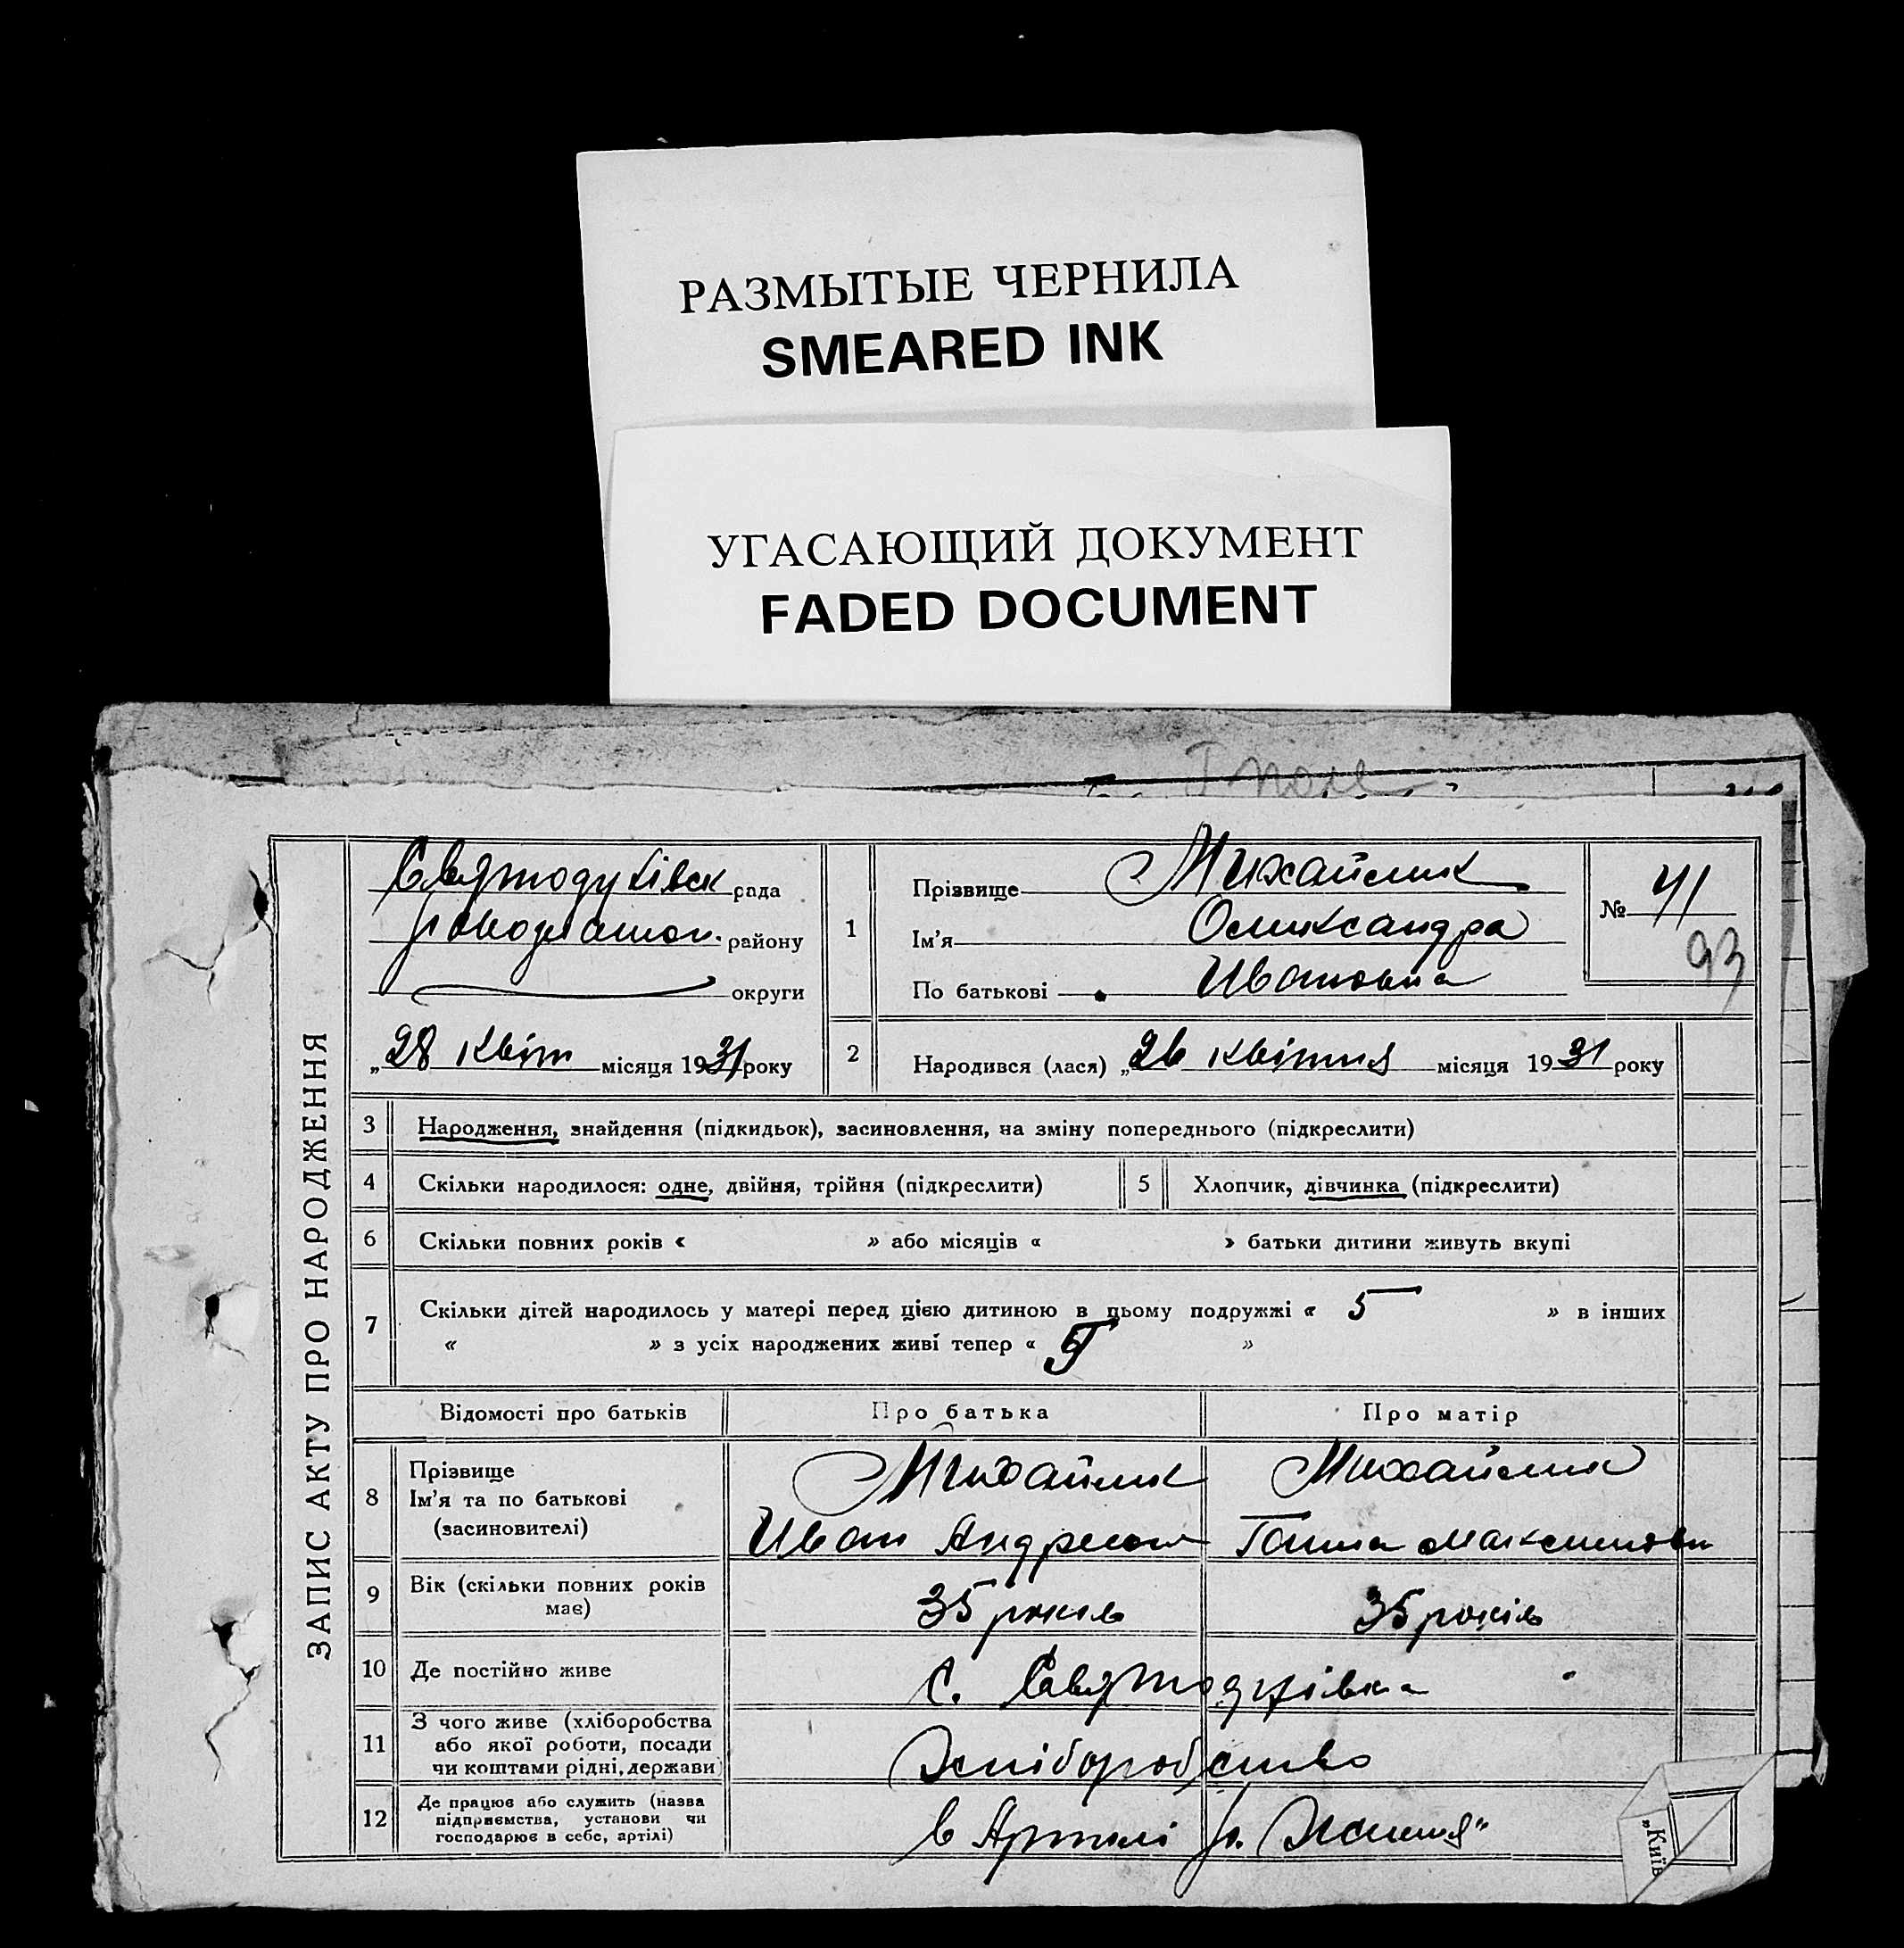 РАЗМЫТЫЕ ЧЕРНИЛА
SMEARED INK
УГАСАЮЩИЙ ДОКУМЕНТ
FADED DOCUMENT
ЗАПИС АКТУ ПРО НАРОДЖЕННЯ
рада
району
округи
„28 квіт місяця 1931 року
1
Прізвище Михайлик
Ім'я Олександра
По батькові Ивановна
№ 41
93
2 Народився (лася) „26 квітня місяця 1931 року
3 Народження, знайдення (підкидьок), засиновлення, на зміну попереднього (підкреслити)
4 Скільки народилося: одне, двійня, трійня (підкреслити) 5 Хлопчик, дівчинка (підкреслити)
6 Скільки повних років « » або місяців « » батьки дитини живуть вкупі
7 Скільки дітей народилось у матері перед цією дитиною в цьому подружжі « 5 » в інших
« » з усіх народжених живі тепер « »
Відомості про батьків Про батька Про матір
8 Прізвище Михайлик Михайлик
Ім'я та по батькові
(засиновителі) Иван Ганна
9 Вік (скільки повних років 35 років 35 років
має)
10 Де постійно живе С.
11 З чого живе (хліборобства
або якої роботи, посади Хліборобство
чи коштами рідні, держави)
12 Де працює або служить (назва
підприємства, установи чи в Артілі
господарює в себе, артілі)
„Київ